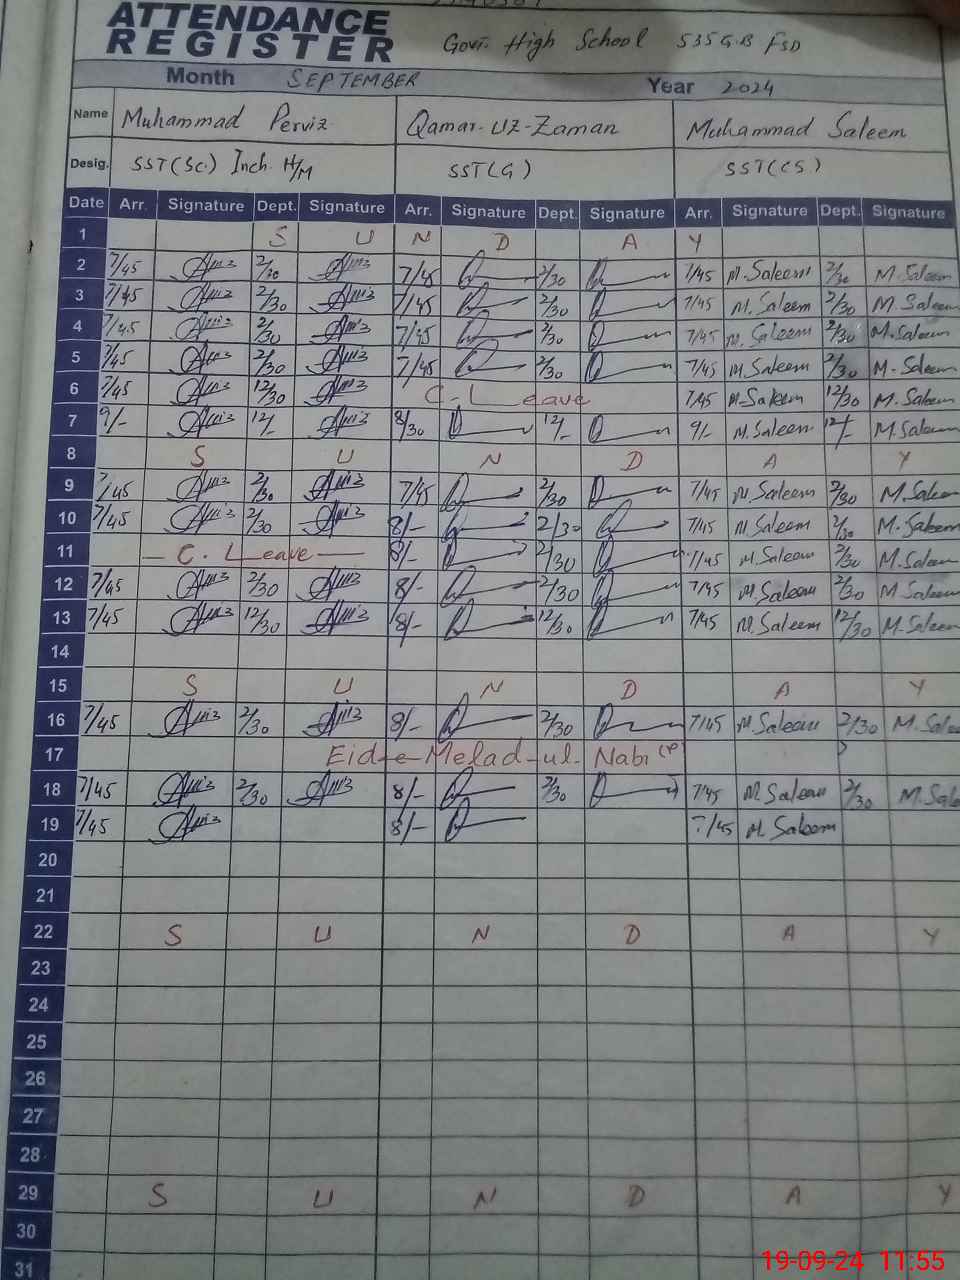 ATTENDANCE
REGISTER
Govt. High School 535 G.B FSD
Month SEPTEMBER Year 2024
Name Muhammad Perviz Qamar-UZ-Zaman Muhammad Saleem
Desig. SST(Sc.) Inch. H/M SST(G) SST(CS)
Date Arr. Signature Dept. Signature Arr. Signature Dept. Signature Arr. Signature Dept. Signature
1 S U N D A Y
2 7/45 2/30 7/45 2/30 7/45 M.Saleem 2/30 M.Saleem
3 7/45 2/30 7/45 2/30 7/45 M.Saleem 2/30 M.Saleem
4 7/45 2/30 7/45 2/30 7/45 M.Saleem 2/30 M.Saleem
5 7/45 2/30 7/45 2/30 7/45 M.Saleem 2/30 M-Saleem
6 7/45 12/30 C-Leave 7/45 M-Saleem 12/30 M.Saleem
7 9/- 12/- 8/30 12/- 9/- M.Saleem 12/- M.Saleem
8 S U N D A Y
9 7/45 2/30 7/45 2/30 7/45 M.Saleem 2/30 M.Saleem
10 7/45 2/30 8/- 2/30 7/45 M.Saleem 2/30 M.Saleem
11 - C. Leave - 8/- 2/30 7/45 M.Saleem 2/30 M.Saleem
12 7/45 2/30 8/- 2/30 7/45 M.Saleem 2/30 M.Saleem
13 7/45 12/30 8/- 12/30 7/45 M.Saleem 12/30 M.Saleem
14
15 S U N D A Y
16 7/45 2/30 8/- 2/30 7/45 M.Saleem 2/30 M.Sal
17 Eid-e-Melad-ul-Nabi
18 7/45 2/30 8/- 2/30 7/45 M.Saleem 2/30 M.Sale
19 7/45 8/- 7/45 M.Saleem
20
21
22 S U N D A Y
23
24
25
26
27
28
29 S U N D A Y
30
31
19-09-24 11:55